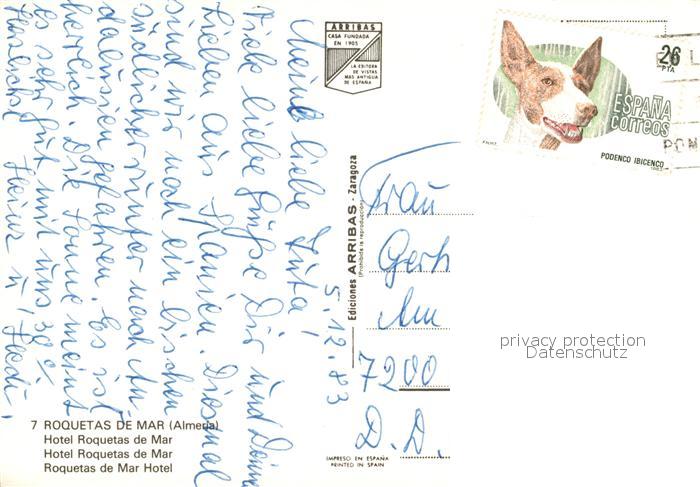 5.12.83
Meine liebe Juta!
Viele liebe Grüße Dir und Deinen
Lieben aus Spanien. Diesmal
sind wir noch ein bischen
südlicher runter nach An-
dalusien gefahren. Es ist
herrlich. Die Sonne meint
es sehr gut mit uns 30%
Herzlichst Heinz u.
Frau
Gerh
Am
7200
D.D.
ARRIBAS
CASA FUNDADA
EN 1905
LA EDITORA
DE VISTAS
MAS ANTIGUA
DE ESPAÑA
Ediciones ARRIBAS - Zaragoza
(Prohibida la reproducción)
26
PTA
ESPAÑA
correos
PODENCO IBICENCO
7 ROQUETAS DE MAR (Almería)
Hotel Roquetas de Mar
Hotel Roquetas de Mar
Roquetas de Mar Hotel
IMPRESO EN ESPAÑA
PRINTED IN SPAIN
privacy protection
Datenschutz